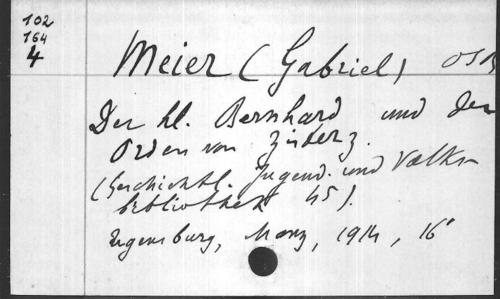 102
164
4
Meier (Gabriel) OSB
Der hl. Bernhard und der
Orden von Zisterz.
(Geschichtl. Jugend. und Volks-
bibliothek 45).
Regensburg, Manz, 1914, 16°